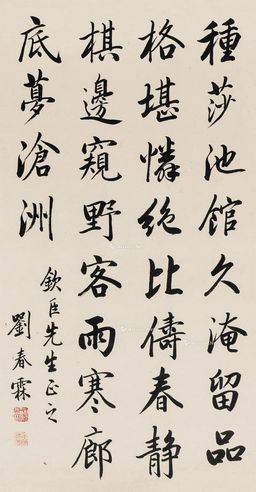 種莎池館久淹留品
格堪憐絶比儔春靜
棋邊窺野客雨寒廊
底夢滄洲
欽臣先生正之
劉春霖